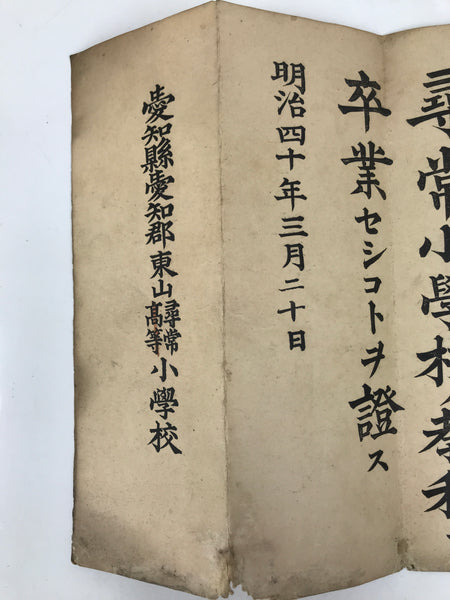 尋常小學校ノ教科ヲ
卒業セシコトヲ證ス
明治四十年三月二十日
愛知縣愛知郡東山尋常高等小學校